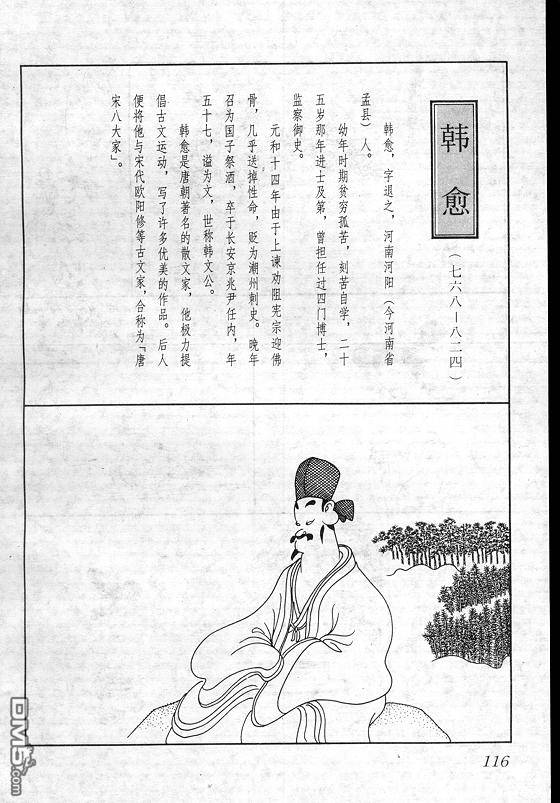 韩愈
(七六八—八二四)
韩愈,字退之,河南河阳(今河南省
孟县)人。
幼年时期贫穷孤苦,刻苦自学,二十
五岁那年进士及第,曾担任过四门博士,
监察御史。
元和十四年由于上谏劝阻宪宗迎佛
骨,几乎送掉性命,贬为潮州刺史。晚年
召为国子祭酒,卒于长安京兆尹任内,年
五十七,谥为文,世称韩文公。
韩愈是唐朝著名的散文家,他极力提
倡古文运动,写了许多优美的作品。后人
便将他与宋代欧阳修等古文家,合称为「唐
宋八大家」。
116
DM5.com